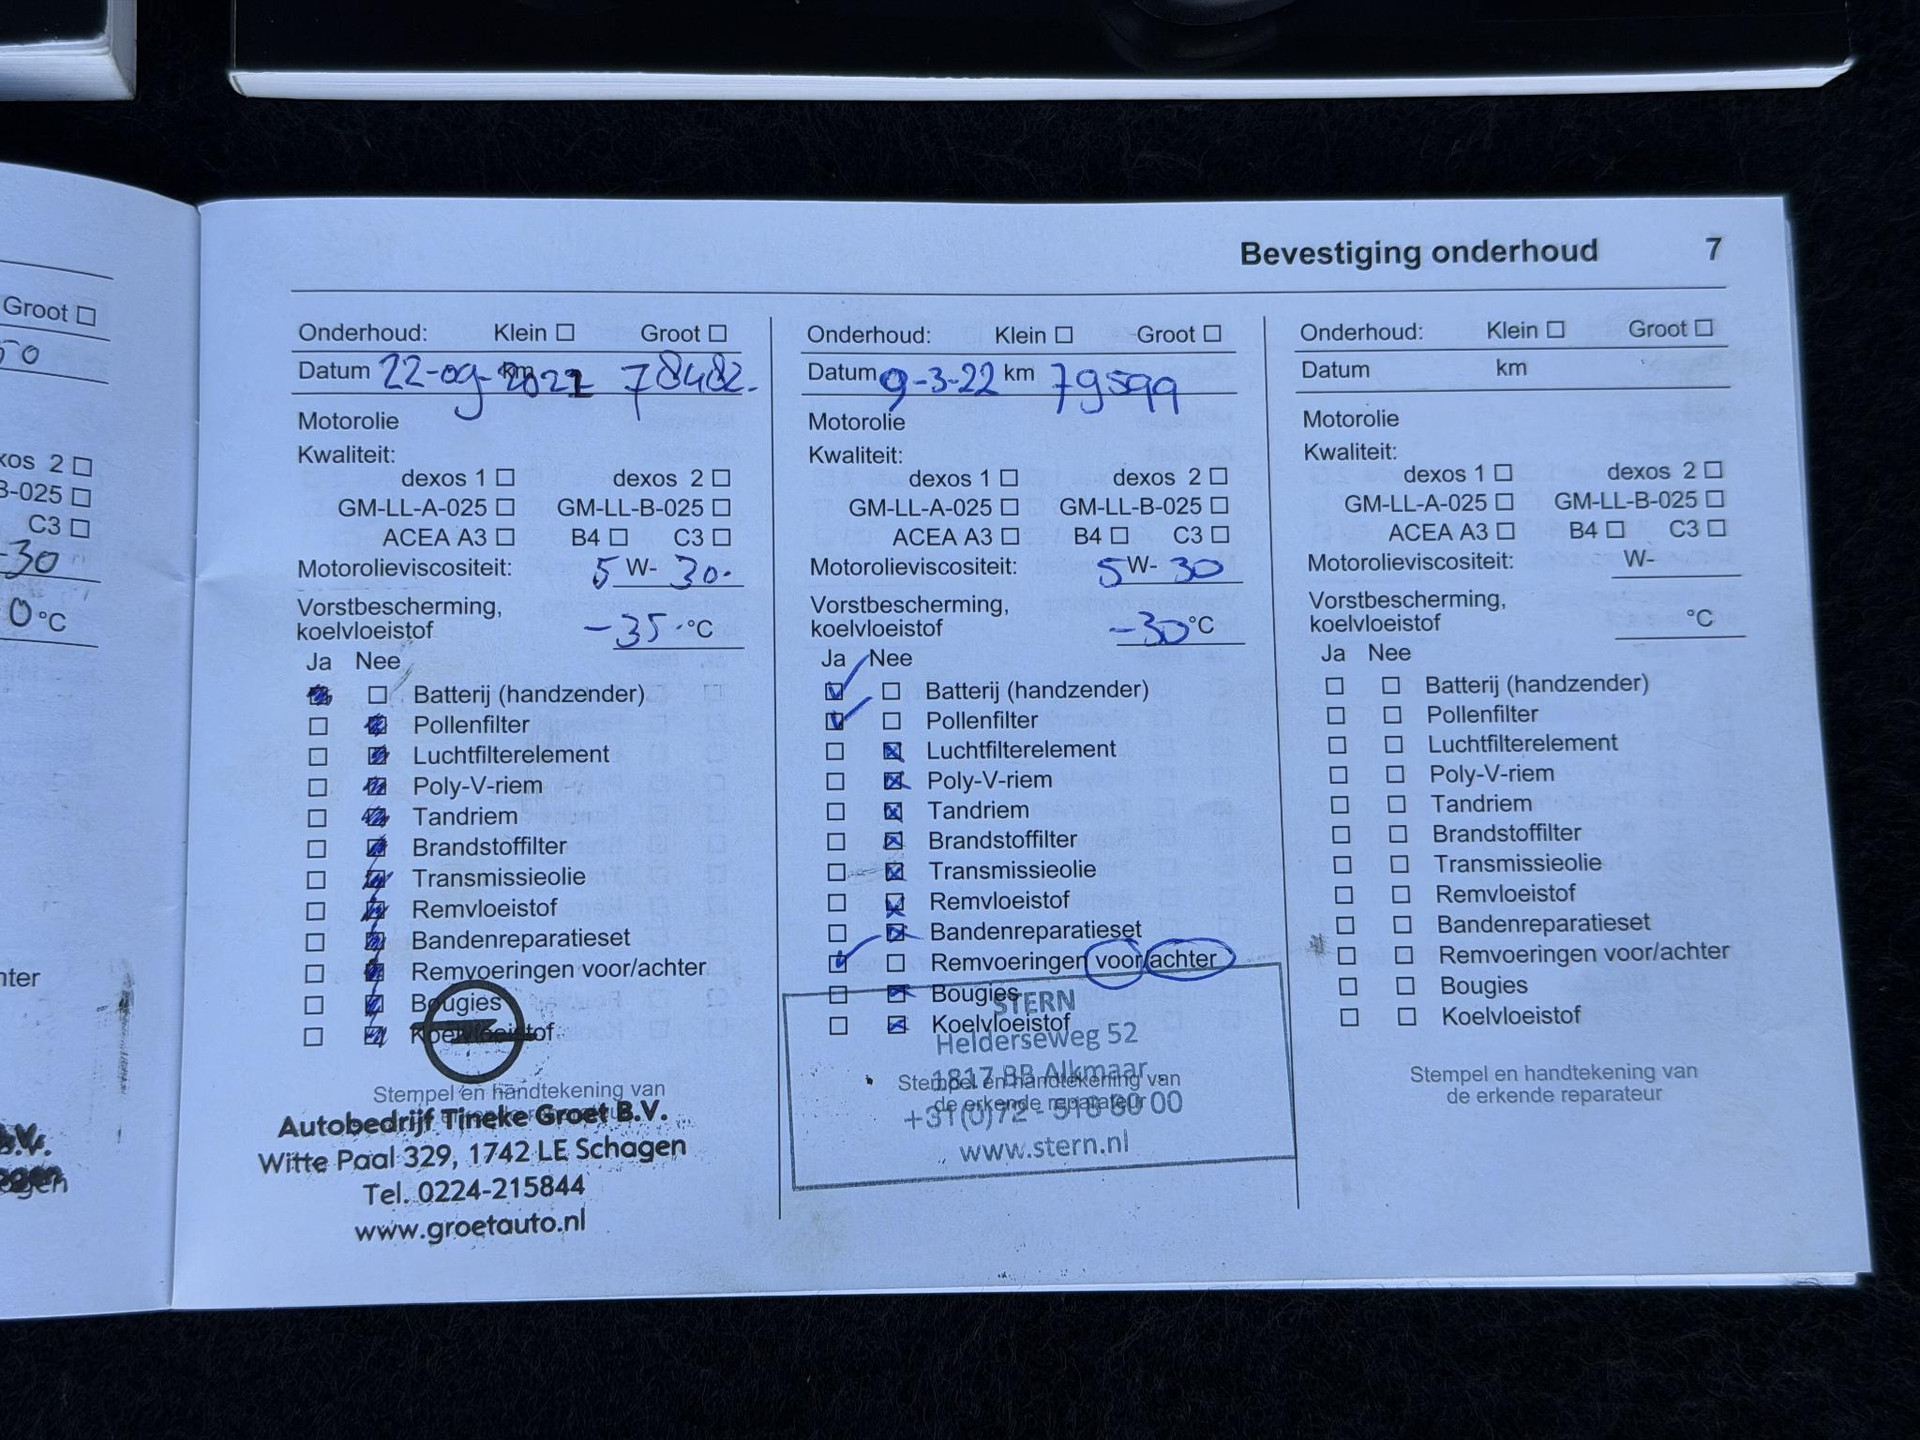 Groot
50
xos 2
B-025
C3
-30
0 °C
hter
B.V.
agen
Bevestiging onderhoud 7
Onderhoud: Klein Groot
Datum 22-09-2021 km 78482.
Motorolie
Kwaliteit:
dexos 1 dexos 2
GM-LL-A-025 GM-LL-B-025
ACEA A3 B4 C3
Motorolieviscositeit: 5 W- 30.
Vorstbescherming,
koelvloeistof -35 °C
Ja Nee
Batterij (handzender)
Pollenfilter
Luchtfilterelement
Poly-V-riem
Tandriem
Brandstoffilter
Transmissieolie
Remvloeistof
Bandenreparatieset
Remvoeringen voor/achter
Bougies
Koelvloeistof
Stempel en handtekening van
Autobedrijf Tineke Groet B.V.
Witte Paal 329, 1742 LE Schagen
Tel. 0224-215844
www.groetauto.nl
Onderhoud: Klein Groot
Datum 9-3-22 km 79599
Motorolie
Kwaliteit:
dexos 1 dexos 2
GM-LL-A-025 GM-LL-B-025
ACEA A3 B4 C3
Motorolieviscositeit: 5 W- 30
Vorstbescherming,
koelvloeistof -30 °C
Ja Nee
Batterij (handzender)
Pollenfilter
Luchtfilterelement
Poly-V-riem
Tandriem
Brandstoffilter
Transmissieolie
Remvloeistof
Bandenreparatieset
Remvoeringen voor/achter
Bougies
Koelvloeistof
STERN
Helderseweg 52
1817 BB Alkmaar
Stempel en handtekening van
de erkende reparateur
+31(0)72 - 518 80 00
www.stern.nl
Onderhoud: Klein Groot
Datum km
Motorolie
Kwaliteit:
dexos 1 dexos 2
GM-LL-A-025 GM-LL-B-025
ACEA A3 B4 C3
Motorolieviscositeit: W-
Vorstbescherming,
koelvloeistof °C
Ja Nee
Batterij (handzender)
Pollenfilter
Luchtfilterelement
Poly-V-riem
Tandriem
Brandstoffilter
Transmissieolie
Remvloeistof
Bandenreparatieset
Remvoeringen voor/achter
Bougies
Koelvloeistof
Stempel en handtekening van
de erkende reparateur